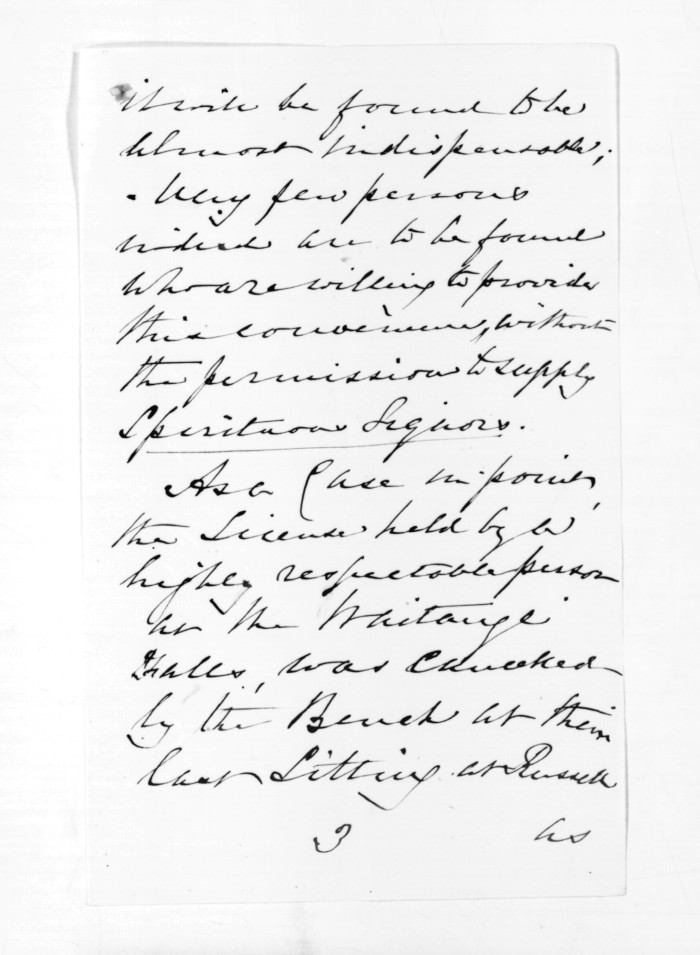 it will be found to be
almost indispensable;
- Very few persons
indeed are to be found
who are willing to provide
this convenience, without
the permission to supply
Spirituous Liquors.
As a Case in point,
the License held by a
highly respectable person
at the Waitangi
Falls, was cancelled
by the Bench at their
last Sitting at Russell
3 as